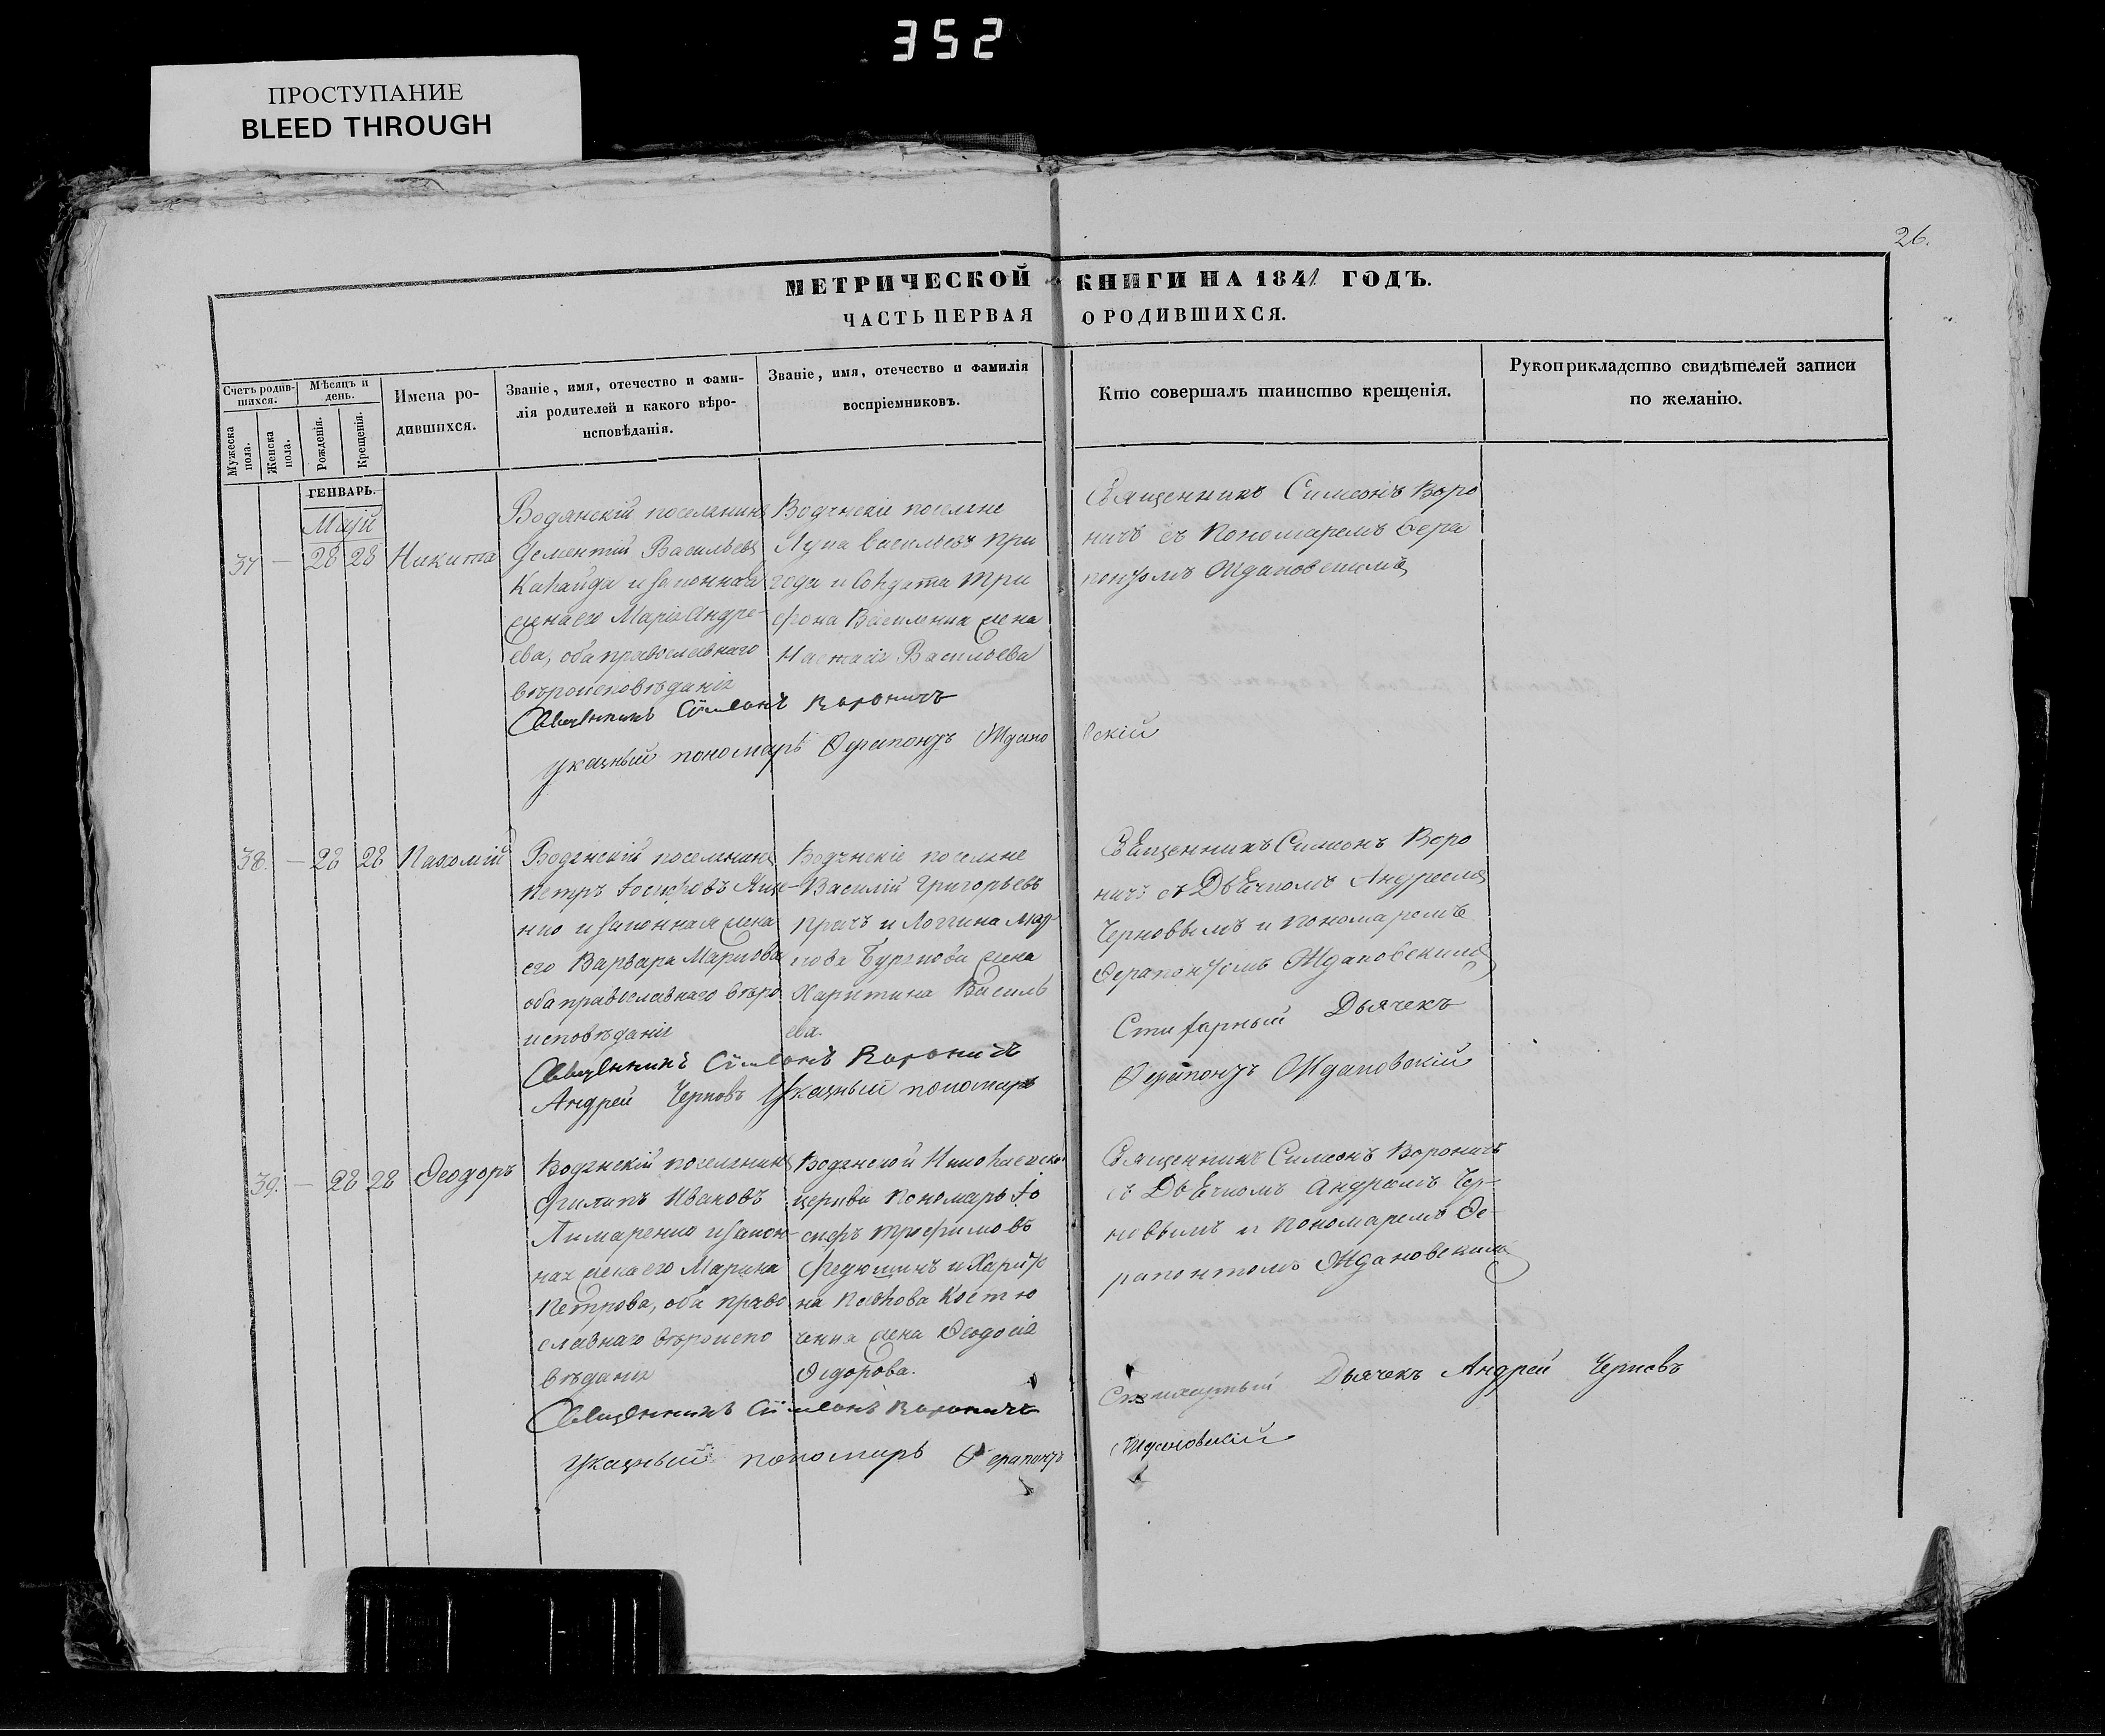 352
ПРОСТУПАНИЕ
BLEED THROUGH
26.
МЕТРИЧЕСКОЙ КНИГИ НА 1841 ГОДЪ.
ЧАСТЬ ПЕРВАЯ О РОДИВШИХСЯ.
Счетъ родив-
шихся.
Мужеска
пола.
Женска
пола.
Мѣсяцъ и
день.
Рожденія.
Крещенія.
Имена ро-
дившихся.
Званіе, имя, отечество и фами-
лія родителей и какого вѣро-
исповѣданія.
Званіе, имя, отечество и фамилія
воспріемниковъ.
Кто совершалъ таинство крещенія.
Рукоприкладство свидѣтелей записи
по желанію.
ГЕНВАРЬ.
Маій
37 — 28 28 Никита
Водянскій поселянинъ
Дементій Васильевъ
и законная
жена его Марія Андре-
ева, оба православнаго
вѣроисповѣданія
Водянскіе поселяне
Лупа Васильевъ При
года и Солдата Три
фона Василенка жена
Настасія Васильева
Священникъ Симеонъ Воро
ничъ съ Пономаремъ Фера
понтомъ Ждановскимъ
Священникъ Сѵмеонъ Вороничъ
Указный пономарь Ферапонтъ Ждано вскій
38. — 28 28 Пахомій
Водянскій поселянинъ
Петръ Іосифовъ Яце-
нко и законная жена
его Варвара Маркова
оба православнаго вѣро
исповѣданія
Водянскіе поселяне
Василій Григорьевъ
Прачъ и Логгина
жена
Харитина Василь
ева.
Священникъ Симеонъ Воро
ничъ съ Дьячкомъ Андреемъ
Черновымъ и пономаремъ
Ферапонтомъ Ждановскимъ
Священникъ Сѵмеонъ Вороничъ
Стихарный Дьячекъ
Андрей Черновъ Указный пономарь
Ферапонтъ Ждановскій
39. — 28 28 Феодоръ
Водянскій поселянинъ
Филипъ Ивановъ
Лимаренко и закон-
ная жена его Марина
Петрова, оба право
славнаго вѣроиспо
вѣданія
Водянской Николаевско
церкви Пономарь Іо
сифъ Трофимовъ
Федюшинъ и Харито
на Павлова Костю
ченка жена Феодосія
Федорова.
Священникъ Симеонъ Вороничъ
съ Дьячкомъ Андреемъ Чер-
новымъ и Пономаремъ Фе-
рапонтомъ Ждановскимъ
Священникъ Сѵмеонъ Вороничъ
Стихарный Дьячекъ Андрей Черновъ
Указный пономарь Ферапонтъ Ждановскій